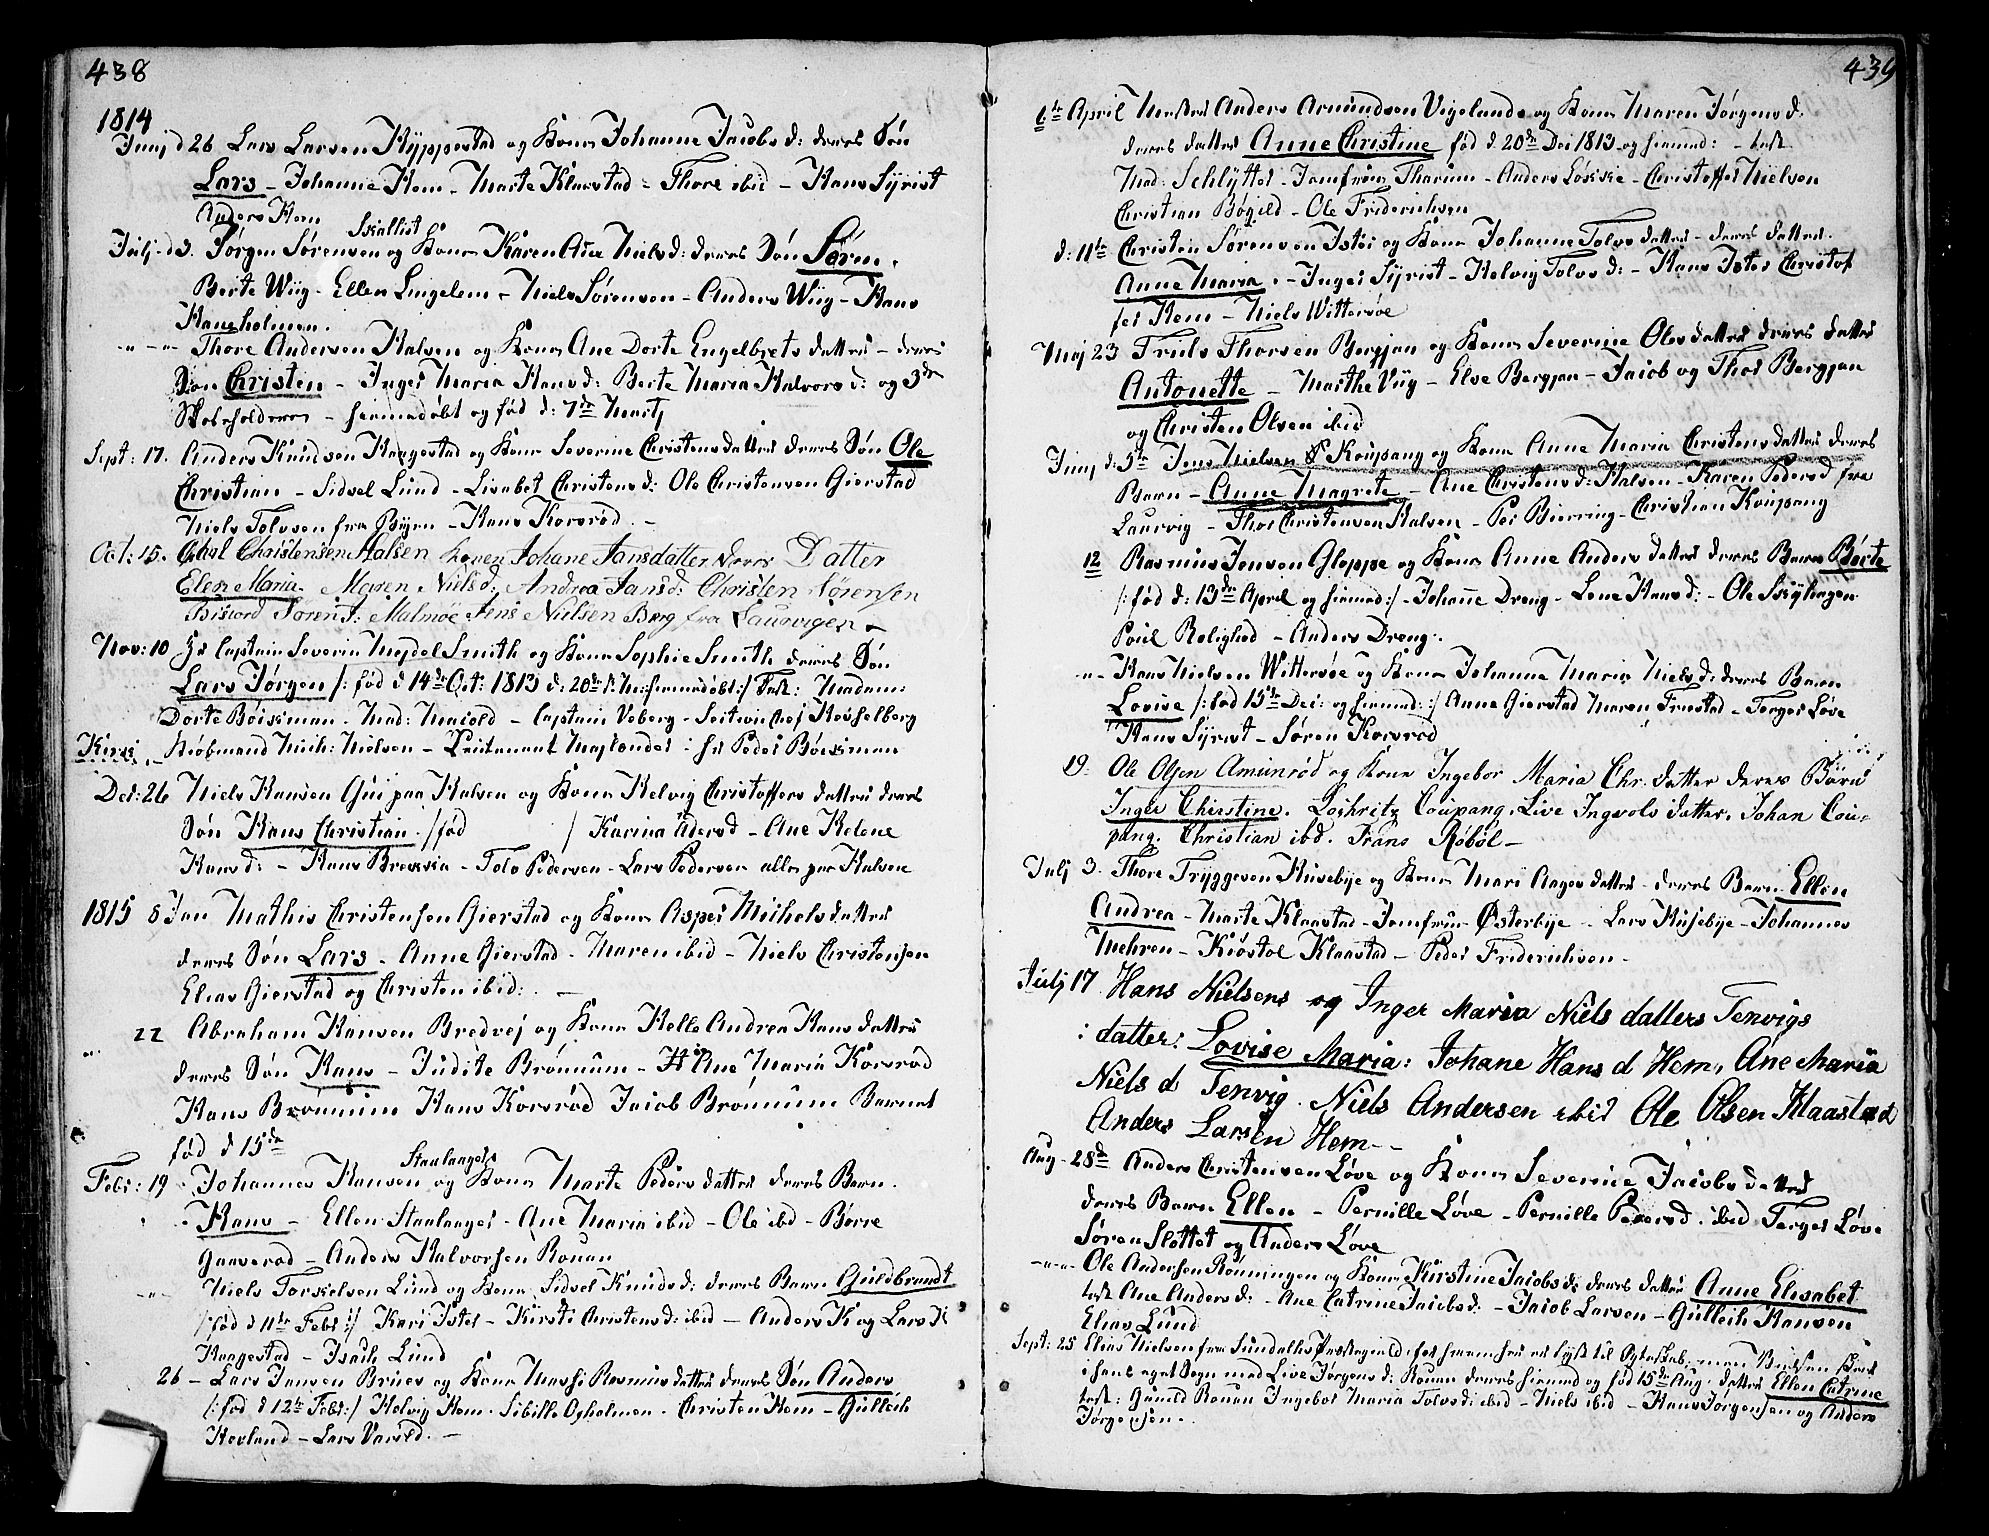 438
1814
Junj d 26 Lars Larsen Kyppestad og Kone Johanne Jacobs d: deres Søn
Lars - Johanne Hem - Marte Klaastad - Thore ibid - Hans Syrist
Anders Hem
Skallist
Julj d 3. Jørgen Sørensen og Kone Karen Ane Niels d: deres Søn Søren.
Berte Wiig - Ellen Lingelem - Niels Sørensen - Anders Wiig - Hans
Haugholmen.
-"- -"- Thore Andersen Halsen og Kone Ane Dorte Engelbrets datter - deres
Søn Christen - Inger Maria Hans d: Berte Maria Halvors d: og 3de
- hiemmedøbt og fød d: 7de Martj
Sept: 17. Anders Knudsen Haagestad og Kone Severine Christens datter deres Søn Ole
Christian - Sidsel Lund - Lisabet Christens d: Ole Christensen Gierstad
Niels Tolvsen fra Byen - Hans Korsrød. -
Oct: 15. Christensen Halsen konen Johane Jansdatter deres Datter
Elen Maria. Maren Niels d: Andrea Jans d: Christen Sørensen
Bisiord Søren J: Malmøe Jens Nielsen Berg fra Laurvigen -
Nov: 10 Hr Captain Severin Mydel Smith og Kone Sophie Smith deres Søn
Lars Jørgen /: fød d 14de Oct: 1813 d: 20de hiemmedøbt :/ Test: Madam:
Dorte Bøisman. Mad: - Captain Voberg - Hesselberg
Kiøbmand Mich: Nielsen - Lieutenant - hr Peder Bøisman
Dec: 26 Niels Hansen Gui paa Halsen og Kone Helvig Christoffers datter deres
Søn Hans Christian. /fød / Karina Aders d - Ane Helene
Hans d: - Hans Brekkia - Tolv Pedersen - Lars Pedersen alle paa Halsen
1815 8 Jan Mathis Christensen Gierstad og Kone Asper Michels datter
deres Søn Lars - Anne Gierstad. Maren ibid - Niels Christensen
Elias Gierstad og Christen ibid: -
22 Abraham Hansen Bredvej og Kone Helle Andrea Hans datter
deres Søn Hans - Judite Brønnum - Ane Maria Korsrød
Hans Brønnum Hans Korsrød Jacob Brønnum Barnet
fød d 15de
Staulanger
Febr: 19 Johannes Hansen og Kone Marte Peders datter deres Barn.
Hans - Ellen Staulanger - Ane Maria ibid - Ole ibd - Børre
Gunnerød - Anders Halvorsen Rouan
-"- Niels Torkelsen Lund og Kone Sidsel Knuds d: deres Barn Guldbrandt
/:fød d 11te Febr:/ Kari Ister - Kirsti Christens d: ibid - Anders K og Lars K
Haagestad - Isach Lund
26 - Lars Jensen Bruer og Kone Marthi Rasmus datter deres Søn Anders
/:fød d 12te Febr:/ Helvig Hem. Sibille Ogholmen. Christen Hem - Gulleik
Hovland - Lars Varild. -
439
April Anders Amundsen Vigeland og Kone Maren Jørgens d.
deres datter Anne Christine fød d. 20de Dec 1813 og hiemmed: - test.
Mad: Schlytter - Jomfrue Tharum - Anders Løkke - Christoffer Nielsen
Christian Bøgild - Ole Friderichsen
d: 11te Christen Sørensen Ister og Kone Johanne Tolvs datter - deres datter.
Anne Maria. - Inger Syrist - Helvig Tolvs d: - Hans Ister Christof
fer Hem - Niels Wittersøe
Maj 23 Truls Thorsen Bergjan og Kone Severine Olsdatter deres datter
Antonette - Marthe Viig - Else Bergjan - Jacob og Thor Bergjan
og Christen Olsen ibid
Junj d: 5te Jens Nielsen Koupang og Kone Anne Maria Christens datter deres
Barn - Anne Magrete - Ane Christens d: Halsen - Karen Peders d fra
Laurvig - Thor Christensen Halsen - Per Bierring - Christian Koupang
12 Rasmus Jensen Gloppe og Kone Anne Anders datter deres Barn Børte
/: fød d: 13de April og hiemmed:/ - Johanne Dreng - Lene Hans d: - Ole Skyhagen
Poul Rolighed - Anders Dreng:.
-"- Hans Nielsen Wittersøe og Kone Johanne Maria Niels d: deres Barn
Lovise /: fød 15de Dec: og hiemmed: :/ Anne Gierstad Maren Frostad - Torger Løve
Hans Syrist - Søren Korsrød
19: Ole Olsen Amunrød og Kone Ingebor Maria Chr. datter deres Barn
Inger Christine. Lochritz Coupang. Live Ingvols datter, Johan Cou-
pang. Christian ibd. Frans Røbøl -
Julj 3. Thore Tryggesen Husebije og Kone Mari Aages datter - deres Barn Ellen
Andrea - Marte Klaastad - Jomfrue Østerbije - Lars Husebije - Johannes
Mehren - Kiøstol Klaastad - Peder Friderichsen -
Julj 17 Hans Nielsens og Inger Maria Niels datters Tenvigs
: datter: Lovise Maria: Johane Hans d Hem, Ane Maria
Niels d Tenvig. Niels Andersen ibid Ole Olsen Klaastad
Anders Larsen Hem -
Aug - 28d Anders Christensen Løve og Kone Severine Jacobs datter
deres Barn Ellen - Pernille Løve - Pernille Peders d. ibid Torger Løve
Søren Slottet og Anders Løve
-"-"- Ole Andersen Rønningen og Kone Kirstine Jacobs d: deres datter Anne Elisabet
test Ane Anders d: - Ane Catrine Jacobs d: - Jacob Larsen - Gulleik Hansen
Elias Lund
Sept: 25 Elias Nielsen fra Præstegield, til Ægteskab, men
i hans eget Sogn med Live Jørgens d: Rouan deres hiemmed og fød 15de Aug. datter Ellen Catrine
test: Gunild Rouan Ingebor Maria Tolvs d: ibid - Niels ibid - Hans Jørgensen og Anders
Jørgensen.